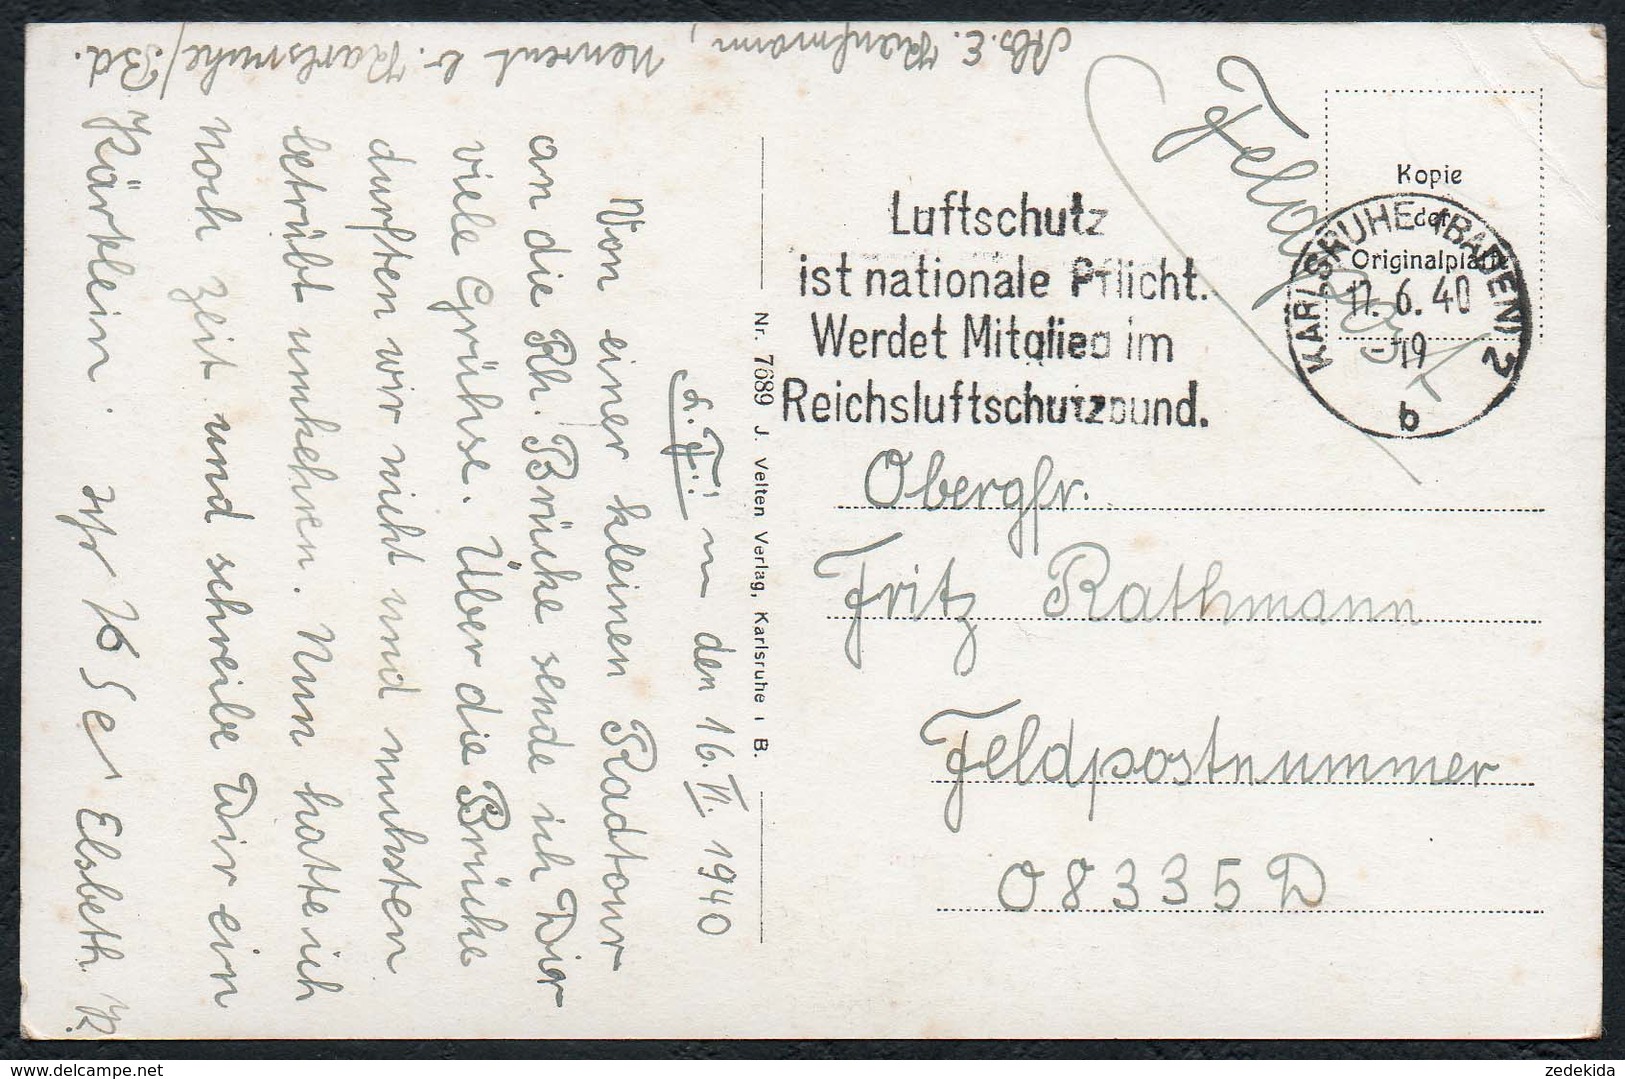 Abs. E. Kaufmann,
Neureut b. Karlsruhe/Bd.
L. F.! den 16. VI. 1940
Von einer kleinen Radtour
an die Rh. Brücke sende ich Dir
viele Grühse. Über die Brücke
durften wir nicht und muhsten
betrübt umkehren. Nun hatte ich
noch Zeit und schreibe Dir ein
Kärtlein.
Elsbeth K.
Nr. 7689 J. Velten Verlag, Karlsruhe i B.
Feldpost
Kopie
der
Originalplatte
KARLSRUHE (BADEN) 2
17.6.40
-19
b
Luftschutz
ist nationale Pflicht.
Werdet Mitglied im
Reichsluftschutzbund.
Obergfr.
Fritz Rathmann
Feldpostnummer
08335D
www.delcampe.net
zedekida